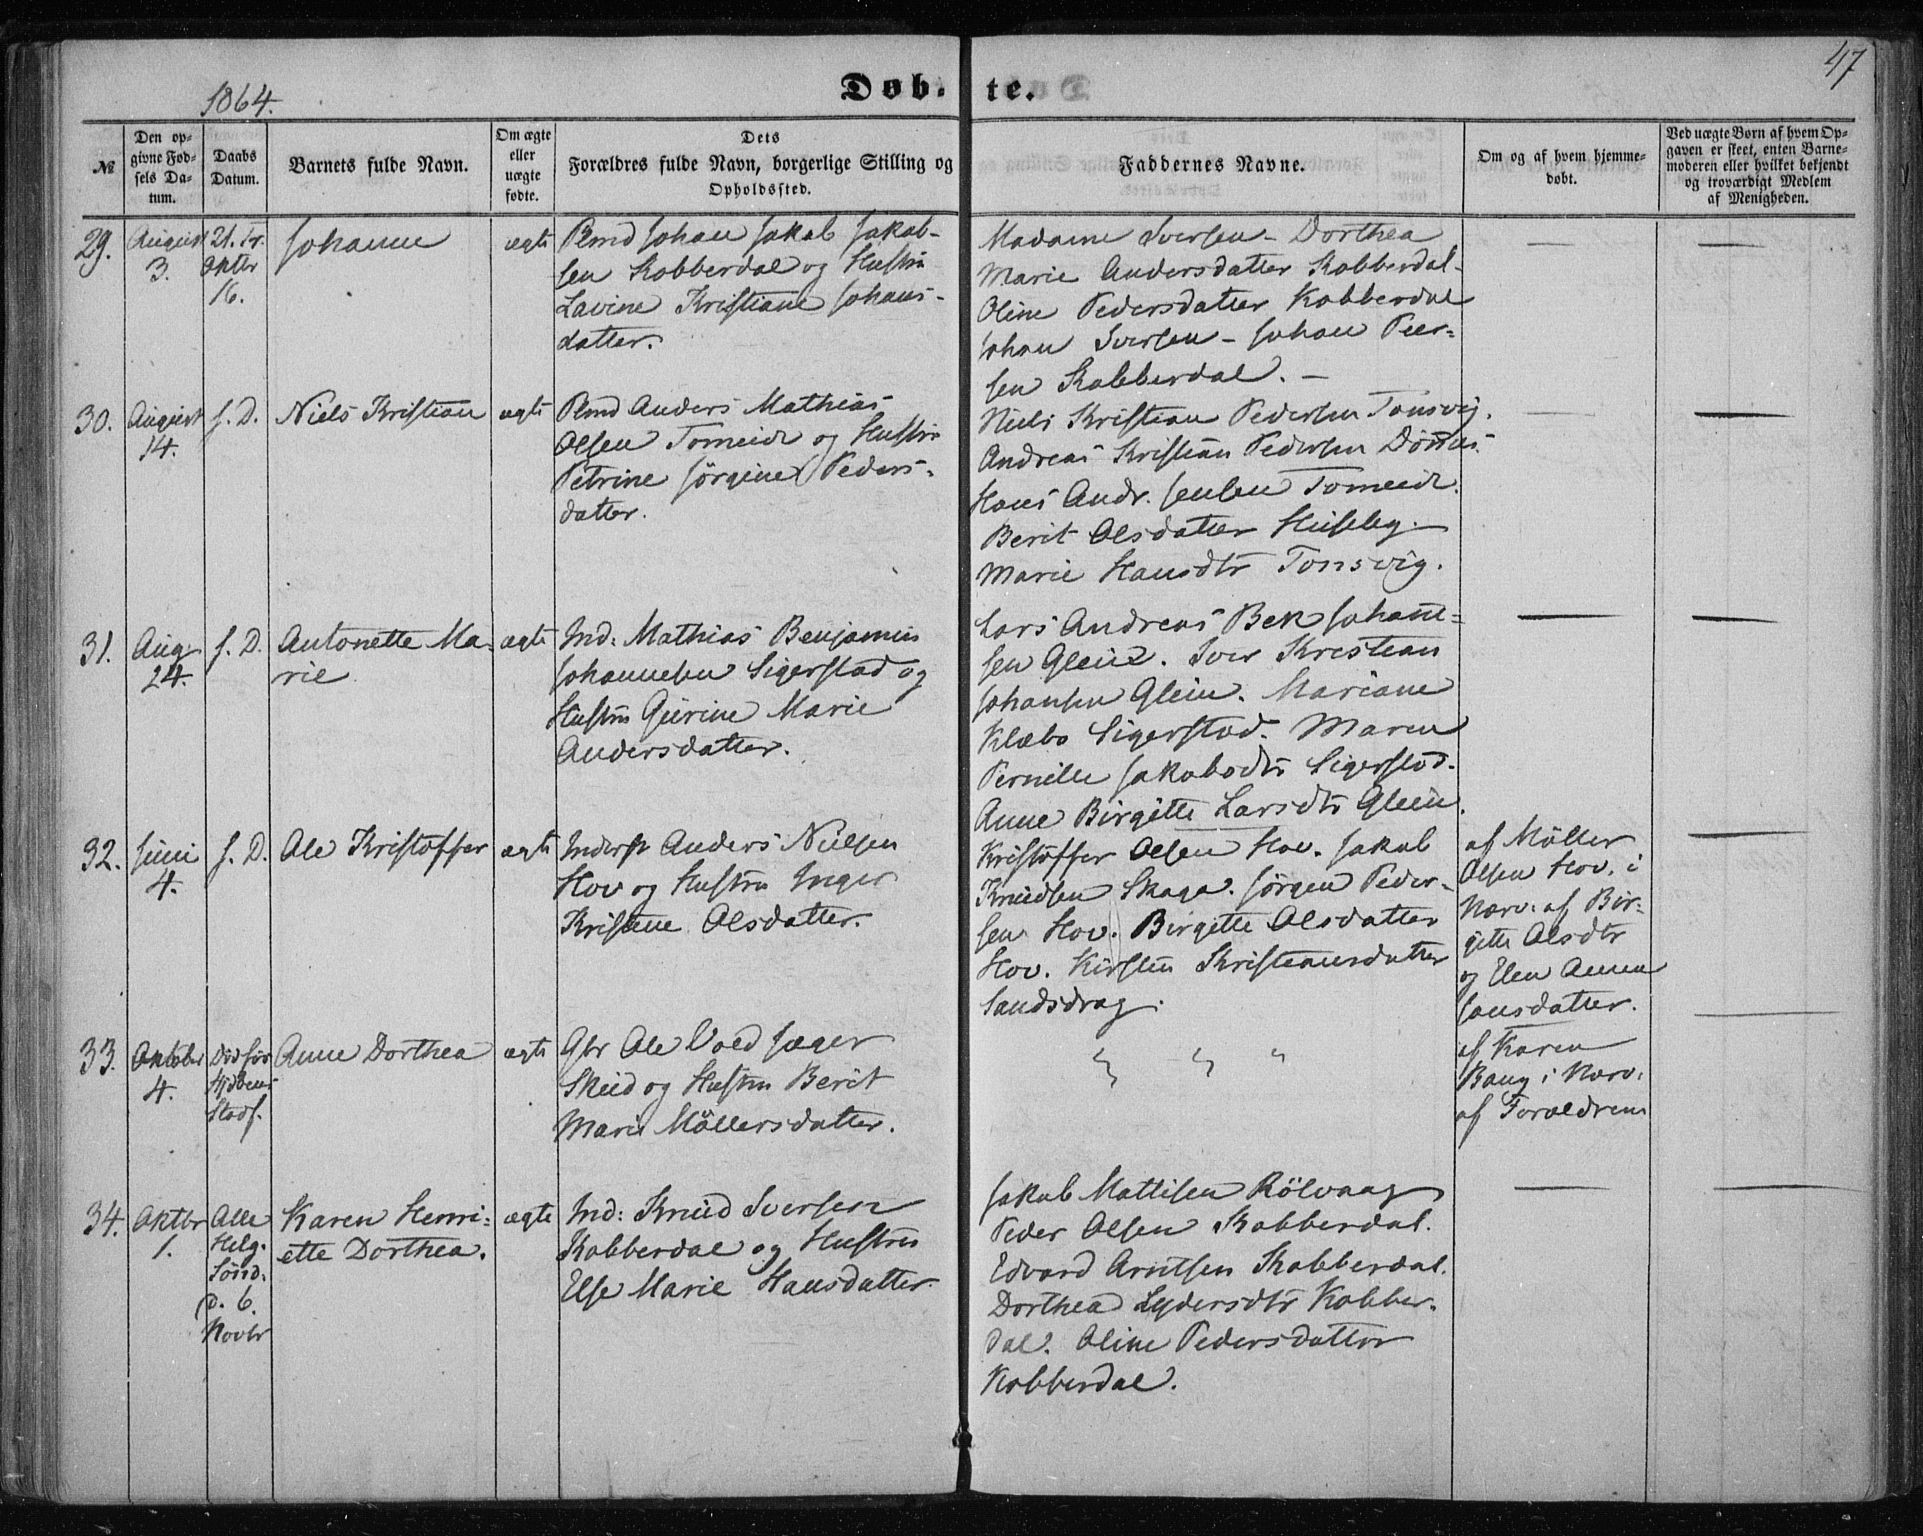 47
1864.
Døb- te.
№
Den op-
givne Fød-
sels Da-
tum.
Daabs
Datum.
Barnets fulde Navn.
Om ægte
eller
uægte
fødte.
Dets
Forældres fulde Navn, borgerlige Stilling og
Opholdssted.
Faddernes Navne.
Om og af hvem hjemme-
døbt.
Ved uægte Børn af hvem Op-
gaven er skeet, enten Barne-
moderen eller hvilket bekjendt
og troværdigt Medlem
af Menigheden.
29.
August
3.
21. Tr.
Oktbr
16.
Johanne
ægte
Plmd Johan Jakob Jakob-
sen Kobberdal og Hustru
Lavine Kristiane Johans-
datter.
Madame Iversen - Dorthea
Marie Andersdatter Kobberdal-
Oline Pedersdatter Kobberdal
Johan Iversen - Johan Peer-
sen Kobberdal. -
30.
August
14.
s. D.
Niels Kristian
ægte
Plmd Anders Mathias
Olsen Tomeide og Hustru
Petrine Jørgine Peders-
datter.
Niels Kristian Pedersen Tonsvig.
Andreas Kristian Pedersen Dønnes.
Hans Andr. Jensen Tomeide.
Berit Olsdatter Huseby.
Marie Hansdtr Tonsvig.
31.
Aug
24.
s. D.
Antonette Ma-
rie
ægte
Ind: Mathias Benjamin
Johannesen Sigerstad og
Hustru Gurine Marie
Andersdatter.
Lars Andreas Bek Johan-
sen Glein. Iver Kristian
Johansen Glein. Mariane
Klæbo Sigerstad. Maren
Pernille Jakobsdtr Sigerstad.
Anne Birgitte Larsdtr Glein.
32.
Juni
4.
s. D.
Ole Kristoffer
ægte
Inderst Anders Nielsen
Hov og Hustru Inger
Kristine Olsdatter.
Kristoffer Olsen Hov. Jakob
Knudsen Skaga. Jørgen Peder-
sen Hov. Birgitte Olsdatter
Hov. Kirsten Kristiansdatter
Sandsdrag.
af Møller
Olsen Hov. i
Nærv. af Bir-
gitte Olsdtr
og Elen Anna
Jonsdatter.
33.
Oktober
4.
Død før
Stadf.
Anne Dorthea
ægte
Gbr Ole Vold Jæger
Skeid og Hustru Berit
Marie Møllersdatter.
" " "
af Karen
Baug i Nærv.
af Forældrene
34.
Oktbr
1.
Alle
Helg.
Sønd.
d. 6.
Novbr
Karen Henri-
ette Dorthea.
ægte
Ind: Knud Iversen
Kobberdal og Hustru
Else Marie Hansdatter.
Jakob Mattisen Rölvaag
Peder Olsen Kobberdal.
Edvard Arntsen Kobberdal.
Dorthea Lydersdtr Kobber-
dal. Oline Pedersdatter
Kobberdal.